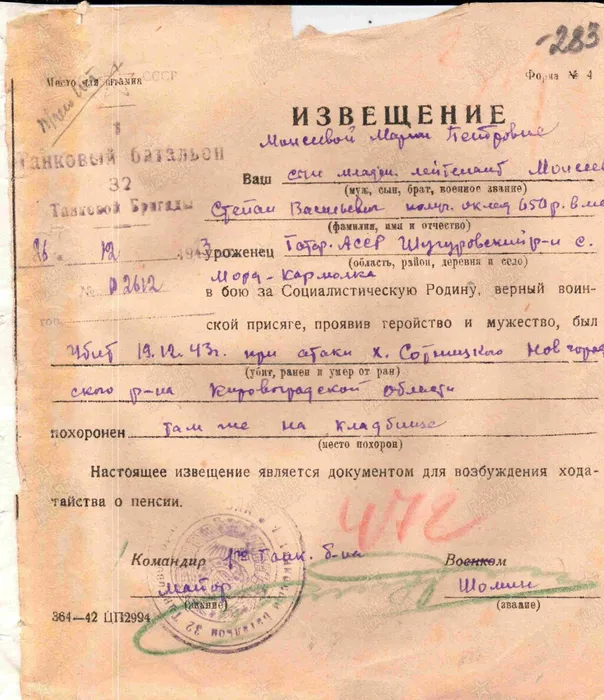 -283
Место для штампа
СССР
Форма № 4
1
Танковый батальон
32
Танковой Бригады
26 12 1943
№ 02612
ИЗВЕЩЕНИЕ
Моисеевой Марии Петровне
Ваш сын младш. лейтенант Моисеев
(муж, сын, брат, военное звание)
Степан Васильевич оклад 650 р. в м
(фамилия, имя и отчество)
уроженец Татар. АССР Шугуровский р-н с.
(область, район, деревня и село)
Морд-Кармалка
в бою за Социалистическую Родину, верный воин-
ской присяге, проявив геройство и мужество, был
убит 19.12.43г. при атаки х. Сотницкого Новград
(убит, ранен и умер от ран)
ского р-на Кировоградской области
похоронен там же на кладбище
(место похорон)
Настоящее извещение является документом для возбуждения хода-
тайства о пенсии.
472
Командир 1го Танк. б-на
Военком
майор
Шомин
(звание)
(звание)
364—42 ЦП2994